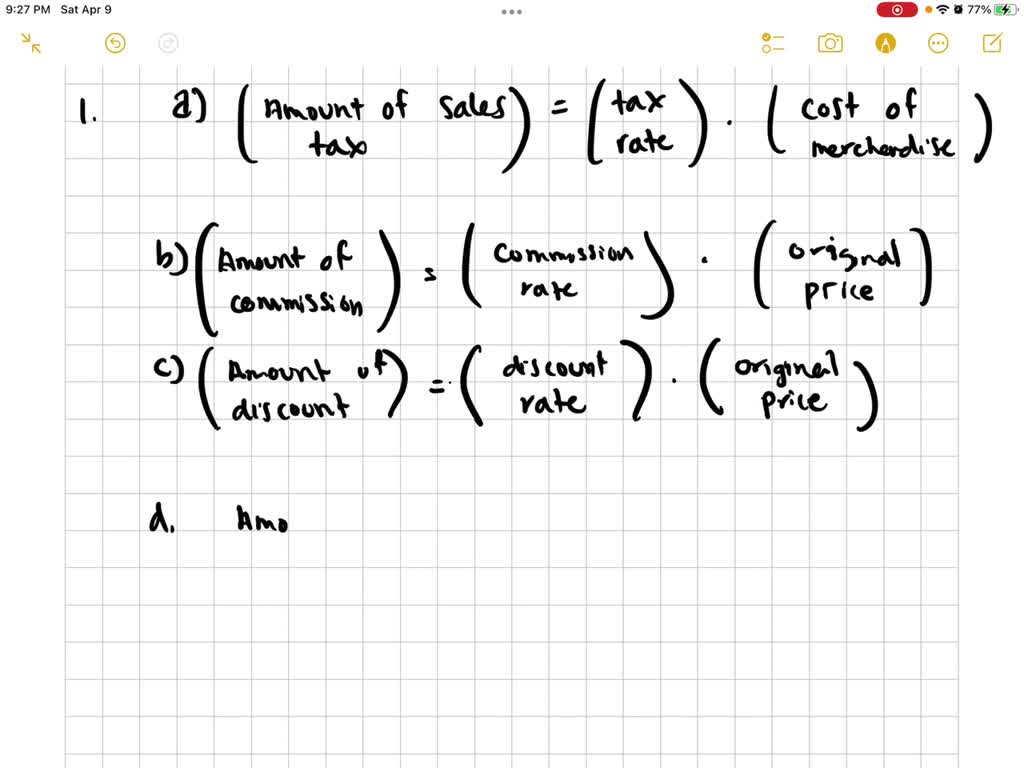 9:27 PM Sat Apr 9
77%
1. a) (Amount of sales tax) = (tax rate) · (cost of merchandise)
b) (Amount of commission) = (commission rate) · (original price)
c) (Amount of discount) = (discount rate) · (original price)
d. Amo